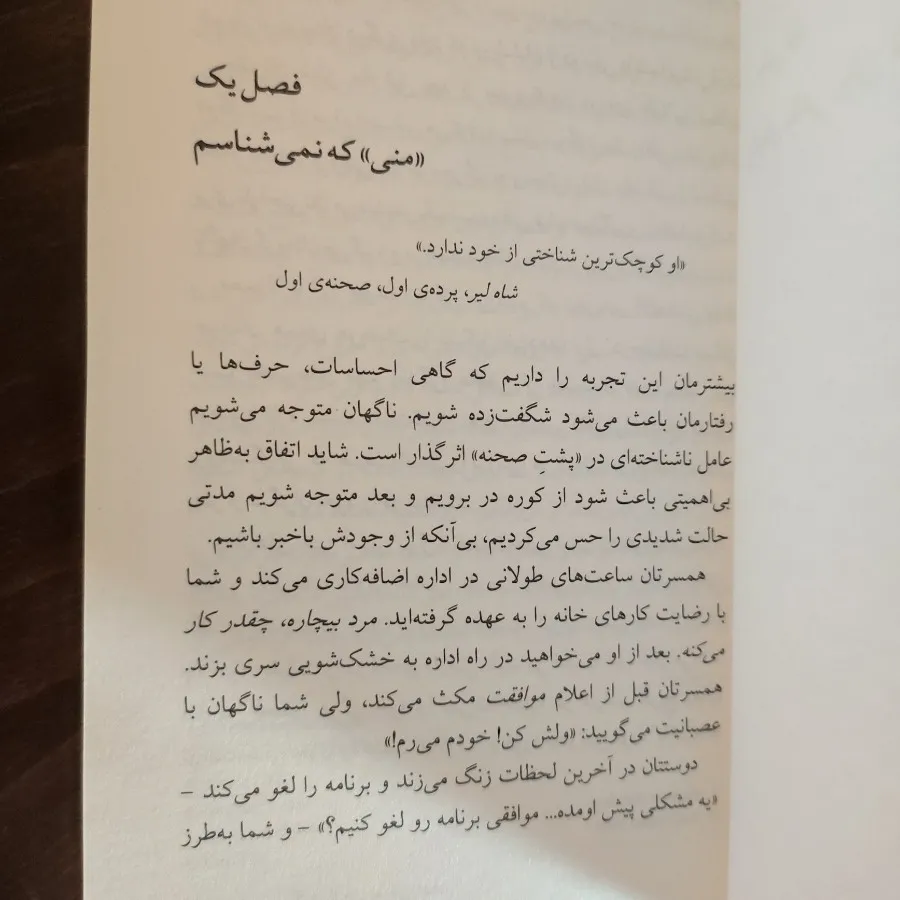 فصل یک
«منی» که نمی‌شناسم
«او کوچک‌ترین شناختی از خود ندارد.»
شاه لیر، پرده‌ی اول، صحنه‌ی اول
بیشترمان این تجربه را داریم که گاهی احساسات، حرف‌ها یا
رفتارمان باعث می‌شود شگفت‌زده شویم. ناگهان متوجه می‌شویم
عامل ناشناخته‌ای در «پشتِ صحنه» اثرگذار است. شاید اتفاق به‌ظاهر
بی‌اهمیتی باعث شود از کوره در برویم و بعد متوجه شویم مدتی
حالت شدیدی را حس می‌کردیم، بی‌آنکه از وجودش باخبر باشیم.
همسرتان ساعت‌های طولانی در اداره اضافه‌کاری می‌کند و شما
با رضایت کارهای خانه را به عهده گرفته‌اید. مرد بیچاره، چقدر کار
می‌کنه. بعد از او می‌خواهید در راه اداره به خشک‌شویی سری بزند.
همسرتان قبل از اعلام موافقت مکث می‌کند، ولی شما ناگهان با
عصبانیت می‌گویید: «ولش کن! خودم می‌رم!»
دوستتان در آخرین لحظات زنگ می‌زند و برنامه را لغو می‌کند –
«یه مشکلی پیش اومده... موافقی برنامه رو لغو کنیم؟» – و شما به‌طرز